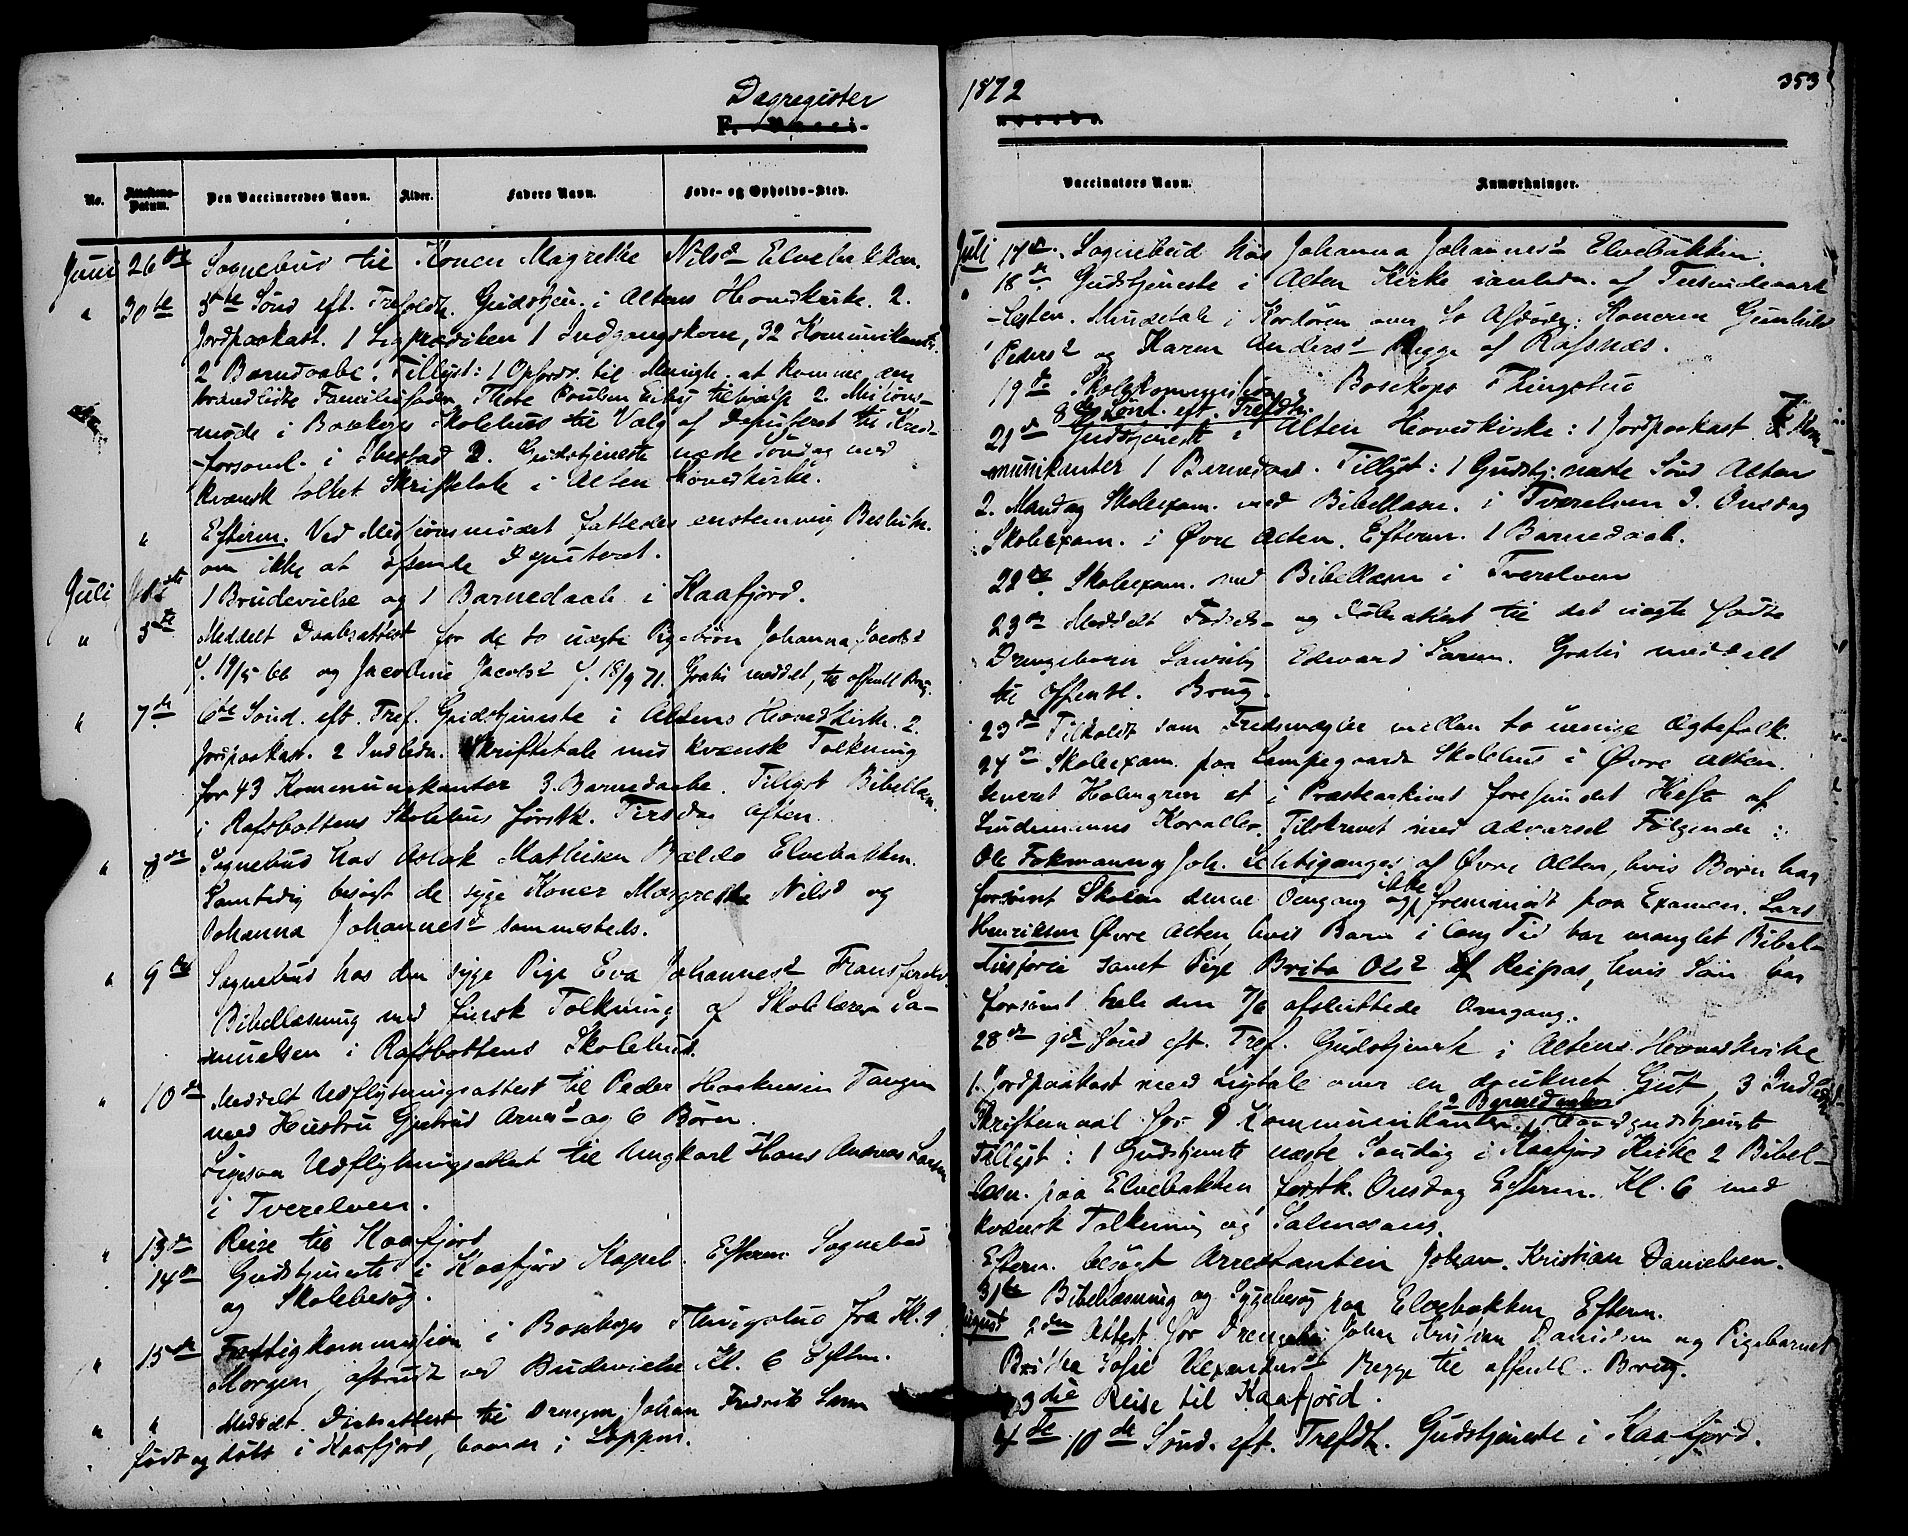 Dagregister
F. Vacci-
No.
Attestens Datum.
Den Vaccineredes Navn.
Alder.
Faders Navn.
Føde- og Opholds-Sted.
Juni 26de Sognebud til Konen Magrethe Nilsd Elvebakken.
" 30te 5te Sønd eft. Trefoldt. Gudstjen. i Altens Hovedkirke. 2.
Jordpaakast. 1 Ligprædiken 1 Indgangskone, 32 Kommunikanter.
2 Barnedaabe. Tillyst: 1 Opfordr. til Menigh. at komme den
brandlidte Familiefader Thore Poulsen til hjælp 2. Missions-
møde i Bosekops Skolehus til Valg af Deputeret til Kred-
forsaml. i Ibestad 3. Gudstjeneste næste Søndag med
kvænsk tolket Skriftetale i Alten Hovedkirke.
" Efterm. Ved Missionsmødet fattedes enstemmig Beslutn.
om ikke at afsende Deputeret.
Juli 1ste 1 Brudevielse og 1 Barnedaab i Kaafjord.
" 5te Meddelt Daabsattest for de to uægte Pigebørn Johanna Jacobsd
f. 19/5 66 og Jacobine Jacobsd f. 18/9 71. Gratis meddelt, til offentl Brug.
" 7de 6te Sønd. eft. Tref. Gudstjeneste i Altens Hovedkirke. 2.
Jordpaakast. 2 Indledn. Skriftetale med kvænsk Tolkning
for 43 Kommunikanter 3 Barnedaabe. Tillyst Bibellæsn.
i Rafsbottens Skolehus førstk. Tirsdag Aften.
" 8de Sognebud hos Aslak Mathisen Elvebakken.
Samtidig besøgt de syge Koner Margrethe Nilsd og
Johanna Johannesd sammesteds.
" 9de Sognebud hos den syge Pige Eva Johannesd
Bibellæsning med finsk Tolkning af Skolelærer Sa-
muelsen i Rafsbottens Skolehus.
" 10de Meddelt Udflytningsattest til Peder Haakensen Tangen
med Hustru Gjertrud Arnesd og 6 Børn.
Ligesaa Udflytningsattest til Ungkarl Hans Andreas Larsen
i Tverelven.
" 13de Reise til Kaafjord
14de Gudstjeneste i Kaafjord Kapel. Efterm Sognebud
og Skolebesøg.
" 15de Fattigkommission i Bosekops Thingstue fra Kl. 9
Morgen, afbrudt ved Brudevielse Kl. 6 Eftm.
" " Meddelt Daabsattest til Drengen Johan Fredrik Larsen
født og døbt i Kaafjord, boende i Loppen.
1872
353
Vaccinators Navn.
Anmærkninger.
Juli 17de. Sognebud hos Johanna Johannesd Elvebakken.
" 18de Gudstjeneste i Alten Kirke i anledn. af Tusindaars
-festen. Mindetale i Kordøren over to Afdøde: Konerne Gunhild
Pedersd og Karen Andersd Begge af Rafsnæs.
19de Skolekommission i Bosekops Thingstue
8de Sønd. eft. Trefdh.
21de Gudstjeneste i Alten Hovedkirke: 1 Jordpaakast 7 Kom-
munikanter 1 Barnedaab. Tillyst: 1 Gudstj. næste Sønd Alten
2. Mandag Skolexam. med Bibellæsn. i Tverelven 3. Onsdag
Skolexam. i Øvre Alten. Efterm. 1 Barnedaab.
22de. Skolexam. med Bibellæsn i Tverelven
23de Meddelt Fødsels- og Daabsattest til det uægte fødte
Drengebarn Edevard Larsen. Gratis meddelt
til offentl. Brug.
23de Tilholdt som Fredsmægler mellem to uenige Ægtefolk.
24de Skolexam. paa Lampegaards Skolehus i Øvre Alten.
Leveret Holmgren et i Præstearkivet forefundet Hefte af
Lindemanns Koraller. Tilskrevet med Advarsel Følgende:
Ole Fokmann og Joh. af Øvre Alten, hvis Børn har
forsømt Skolen denne Omgang og ikke fremmødt paa Examen. Lars
Henriksen Øvre Alten, hvis Barn i lang Tid har manglet Bibel-
historie samt Pige Brita Olsd af Reipas, hvis Søn har
forsømt hele den 7/6 afsluttede Omgang.
28de 9de Sønd eft. Tref. Gudstjeneste i Altens Hovedkirke
1. Jordpaakast med Ligtale over en druknet Gut, 3 Indledn
2 Barnedaaber
Skriftemaal for 9 Kommunikanter. 1
Tillyst: 1 Gudstjeneste næste Søndag i Kaafjord Kirke 2 Bibel-
læsn. paa Elvebakken førstk. Onsdag Efterm. Kl. 6 med
kvænsk Tolkning og Salmesang.
Efterm. besøgt Arrestanten Johan Kristian Danielsen.
31te Bibellæsning og Sygebesøg paa Elvebakken Efterm.
August 2den Attest for Drengebarn Johan Kristian Danielsen og Pigebarnet
Britha Sofie Alexandersd Begge til offentl. Brug.
3die Reise til Kaafjord.
4de 10de Sønd. eft. Trefdt. Gudstjeneste i Kaafjord.